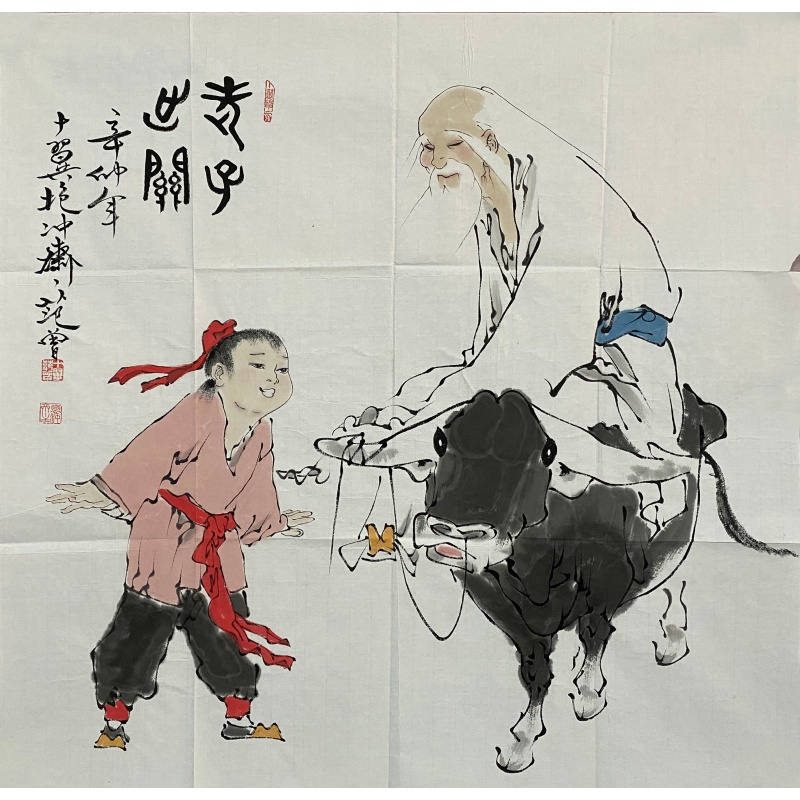 老子
出關
辛卯年
十翼抱冲齋 范曾